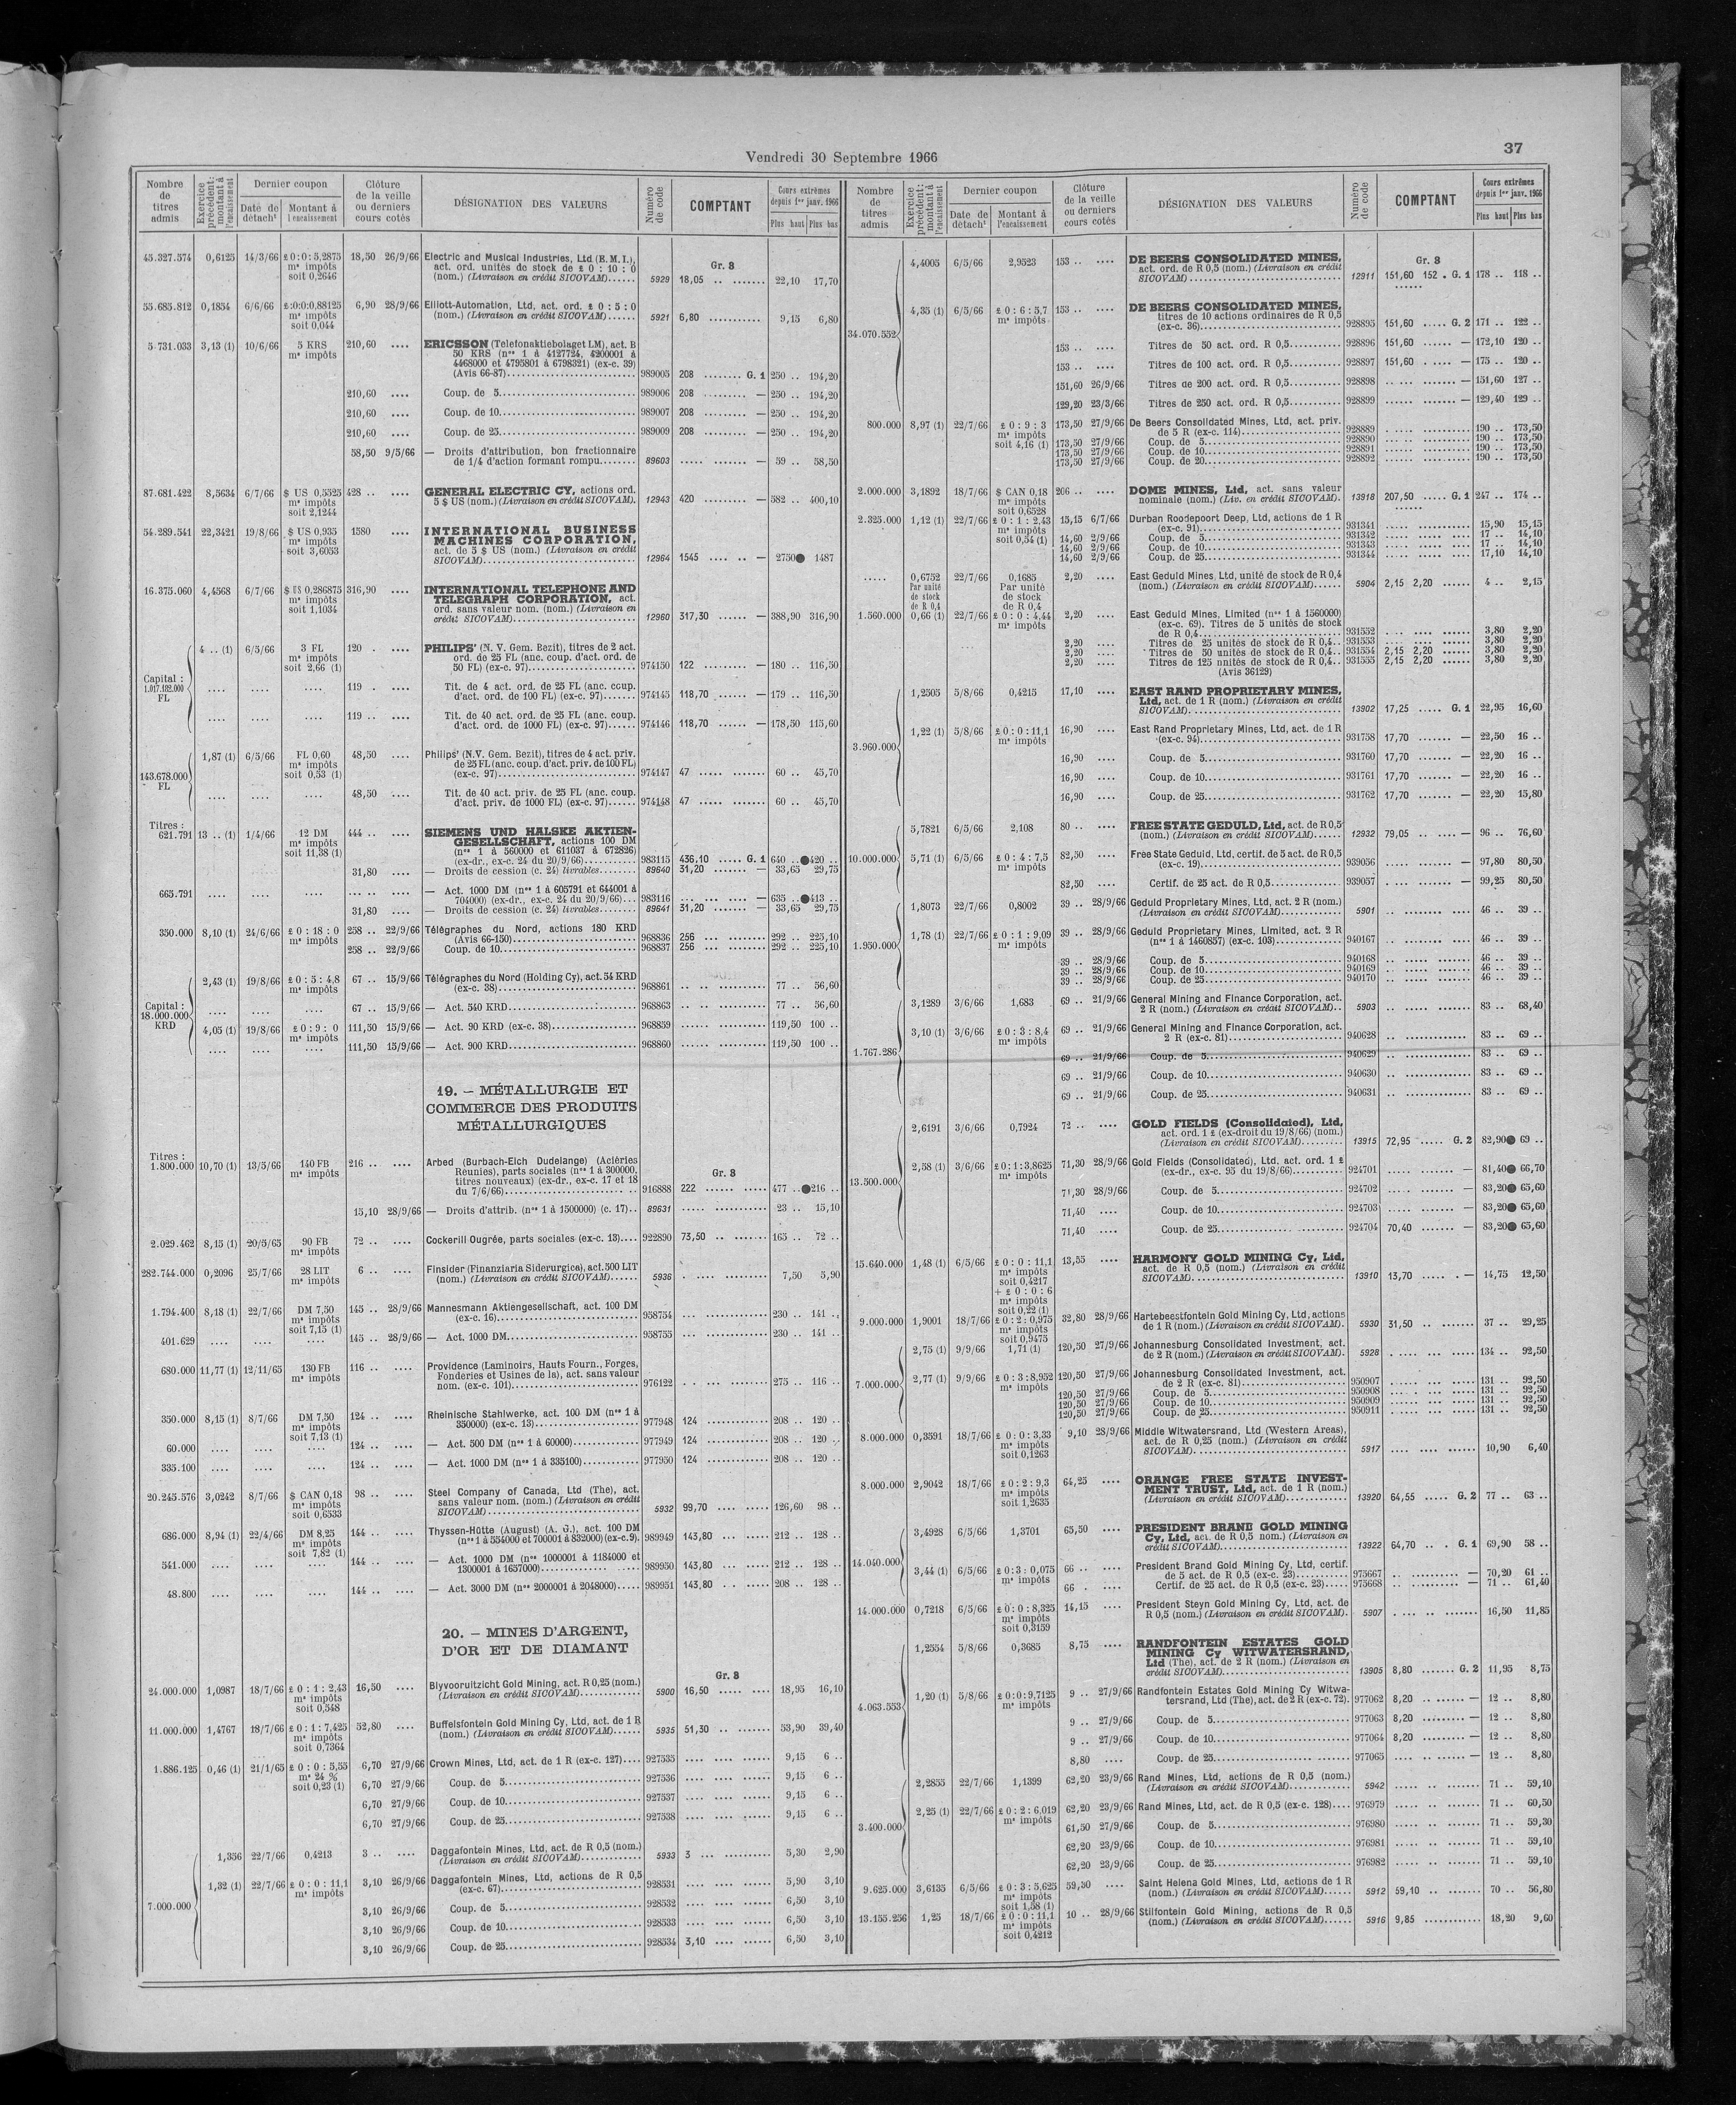 Vendredi 30 Septembre 1966
37
Nombre de titres admis | Exercice précédent: montant à l'encaissement | Dernier coupon | Date de détacht | Montant à l'encaissement | Clôture de la veille ou derniers cours cotés | DÉSIGNATION DES VALEURS | Numéro de code | COMPTANT | Cours extrêmes depuis 1er janv. 1966 | Plus haut | Plus bas
45.327.574 0,6125 14/3/66 £0:0:5,2875 18,50 26/9/66 Electric and Musical Industries, Ltd (E.M.I.),
me impôts act. ord. unités de stock de £ 0 : 10 : 0 Gr. 8
soit 0,2646 (nom.) (Livraison en crédit SICOVAM) 5929 18,05 22,10 17,70
55.685.812 0,1834 6/6/66 £:0:0:0,88125 6,90 28/9/66 Elliott-Automation, Ltd, act. ord. £ 0 : 5 : 0
me impôts (nom.) (Livraison en crédit SICOVAM) 5921 6,80 9,15 6,80
soit 0,044
5.731.033 3,13 (1) 10/6/66 5 KRS 210,60 ERICSSON (Telefonaktiebolaget LM), act. B
me impôts 50 KRS (nos 1 à 4127724, 4200001 à
4468000 et 4795801 à 6798321) (ex-c. 39)
(Avis 66-87) 989005 208 G. 1 250 .. 194,20
210,60 Coup. de 5 989006 208 — 250 .. 194,20
210,60 Coup. de 10 989007 208 — 250 .. 194,20
210,60 Coup. de 25 989009 208 — 250 .. 194,20
58,50 9/5/66 — Droits d'attribution, bon fractionnaire
de 1/4 d'action formant rompu 89603 — 59 .. 58,50
87.681.422 8,5634 6/7/66 $ US 0,5525 428 .. GENERAL ELECTRIC CY, actions ord.
me impôts 5 $ US (nom.) (Livraison en crédit SICOVAM). 12943 420 — 582 .. 400,10
soit 2,1244
54.289.541 22,3421 19/8/66 $ US 0,935 1580 INTERNATIONAL BUSINESS
me impôts MACHINES CORPORATION,
soit 3,6053 act. de 5 $ US (nom.) (Livraison en crédit
SICOVAM) 12964 1545 — 2750● 1487
16.375.060 4,4568 6/7/66 $ US 0,286875 316,90 INTERNATIONAL TELEPHONE AND
me impôts TELEGRAPH CORPORATION, act.
soit 1,1034 ord. sans valeur nom. (nom.) (Livraison en
crédit SICOVAM) 12960 317,30 — 388,90 316,90
4 .. (1) 6/5/66 3 FL 120 . PHILIPS' (N. V. Gem. Bezit), titres de 2 act.
me impôts ord. de 25 FL (anc. coup. d'act. ord. de
soit 2,66 (1) 50 FL) (ex-c. 97) 974150 122 — 180 .. 116,50
Capital : 1.017.182.000 FL
119 . Tit. de 4 act. ord. de 25 FL (anc. coup.
d'act. ord. de 100 FL) (ex-c. 97) 974145 118,70 — 179 .. 116,50
119 .. Tit. de 40 act. ord. de 25 FL (anc. coup.
d'act. ord. de 1000 FL) (ex-c. 97) 974146 118,70 — 178,50 115,60
1,87 (1) 6/5/66 FL 0,60 48,50 Philips' (N.V. Gem. Bezit), titres de 4 act. priv.
me impôts de 25 FL (anc. coup. d'act. priv. de 100 FL)
143.678.000 FL soit 0,53 (1) (ex-c. 97) 974147 47 60 .. 45,70
48,50 Tit. de 40 act. priv. de 25 FL (anc. coup.
d'act. priv. de 1000 FL) (ex-c. 97) 974148 47 60 .. 45,70
Titres :
621.791 13 .. (1) 1/4/66 12 DM 444 .. SIEMENS UND HALSKE AKTIEN-
me impôts GESELLSCHAFT, actions 100 DM
soit 11,38 (1) (nos 1 à 560000 et 611037 à 672826)
(ex-dr., ex-c. 24 du 20/9/66) 983115 436,10 G. 1 640 ..●420 ..
31,80 — Droits de cession (c. 24) livrables 89640 31,20 — 33,65 29,75
665.791 — Act. 1000 DM (nos 1 à 605791 et 644001 à
704000) (ex-dr., ex-c. 24 du 20/9/66) 983116 — 635 ..●413 ..
31,80 — Droits de cession (c. 24) livrables 89641 31,20 — 33,65 29,75
350.000 8,10 (1) 24/6/66 £ 0 : 18 : 0 258 .. 22/9/66 Télégraphes du Nord, actions 180 KRD
me impôts (Avis 66-150) 968836 256 292 .. 225,10
258 .. 22/9/66 Coup. de 10 968837 256 292 .. 225,10
2,43 (1) 19/8/66 £ 0 : 5 : 4,8 67 .. 15/9/66 Télégraphes du Nord (Holding Cy), act. 54 KRD
me impôts (ex-c. 38) 968861 77 .. 56,60
Capital : 18.000.000 KRD
67 .. 15/9/66 — Act. 540 KRD 968863 77 .. 56,60
4,05 (1) 19/8/66 £ 0 : 9 : 0 111,50 15/9/66 — Act. 90 KRD (ex-c. 38) 968859 119,50 100 ..
me impôts
111,50 15/9/66 — Act. 900 KRD 968860 119,50 100 ..
19. — MÉTALLURGIE ET
COMMERCE DES PRODUITS
MÉTALLURGIQUES
Titres :
1.800.000 10,70 (1) 13/5/66 140 FB 216 .. Arbed (Burbach-Eich Dudelange) (Aciéries
me impôts Réunies), parts sociales (nos 1 à 300000, Gr. 8
titres nouveaux) (ex-dr., ex-c. 17 et 18
du 7/6/66) 916888 222 477 ..●216 ..
15,10 28/9/66 — Droits d'attrib. (nos 1 à 1500000) (c. 17) 89631 23 .. 15,10
2.029.462 8,15 (1) 20/5/65 90 FB 72 .. Cockerill Ougrée, parts sociales (ex-c. 13) 922890 73,50 165 .. 72 ..
me impôts
282.744.000 0,2096 25/7/66 28 LIT 6 .. Finsider (Finanziaria Siderurgica), act. 500 LIT
me impôts (nom.) (Livraison en crédit SICOVAM) 5936 7,50 5,90
1.794.400 8,18 (1) 22/7/66 DM 7,50 145 .. 28/9/66 Mannesmann Aktiengesellschaft, act. 100 DM
me impôts (ex-c. 16) 958754 230 .. 141 ..
soit 7,15 (1)
401.629 145 .. 28/9/66 — Act. 1000 DM 958755 230 .. 141 ..
680.000 11,77 (1) 12/11/65 130 FB 116 .. Providence (Laminoirs, Hauts Fourn., Forges,
me impôts Fonderies et Usines de la), act. sans valeur
nom. (ex-c. 101) 976122 275 .. 116 ..
350.000 8,15 (1) 8/7/66 DM 7,50 124 .. Rheinische Stahlwerke, act. 100 DM (nos 1 à
me impôts 350000) (ex-c. 13) 977948 124 208 .. 120 ..
soit 7,13 (1)
60.000 124 .. — Act. 500 DM (nos 1 à 60000) 977949 124 208 .. 120 ..
335.100 124 .. — Act. 1000 DM (nos 1 à 335100) 977950 124 208 .. 120 ..
20.245.576 3,0242 8/7/66 $ CAN 0,18 98 .. Steel Company of Canada, Ltd (The), act.
me impôts sans valeur nom. (nom.) (Livraison en crédit
soit 0,6533 SICOVAM) 5932 99,70 126,60 98 ..
686.000 8,94 (1) 22/4/66 DM 8,25 144 .. Thyssen-Hütte (August) (A. G.), act. 100 DM
me impôts (nos 1 à 554000 et 700001 à 832000) (ex-c.9). 989949 143,80 212 .. 128 ..
soit 7,82 (1)
541.000 144 .. — Act. 1000 DM (nos 1000001 à 1184000 et
1300001 à 1657000) 989950 143,80 212 .. 128 ..
48.800 144 .. — Act. 3000 DM (nos 2000001 à 2048000) 989951 143,80 208 .. 128 ..
20. — MINES D'ARGENT,
D'OR ET DE DIAMANT
Gr. 8
24.000.000 1,0987 18/7/66 £ 0 : 1 : 2,43 16,50 Blyvooruitzicht Gold Mining, act. R 0,25 (nom.)
me impôts (Livraison en crédit SICOVAM) 5900 16,50 18,95 16,10
soit 0,548
11.000.000 1,4767 18/7/66 £ 0 : 1 : 7,425 52,80 Buffelsfontein Gold Mining Cy, Ltd, act. de 1 R
me impôts (nom.) (Livraison en crédit SICOVAM) 5935 51,30 53,90 39,40
soit 0,7364
1.886.125 0,46 (1) 21/1/65 £ 0 : 0 : 5,55 6,70 27/9/66 Crown Mines, Ltd, act. de 1 R (ex-c. 127) 927535 9,15 6 ..
me 24 %
soit 0,23 (1) 6,70 27/9/66 Coup. de 5 927536 9,15 6 ..
6,70 27/9/66 Coup. de 10 927537 9,15 6 ..
6,70 27/9/66 Coup. de 25 927538 9,15 6 ..
1,356 22/7/66 0,4213 3 .. Daggafontein Mines, Ltd, act. de R 0,5 (nom.)
(Livraison en crédit SICOVAM) 5933 3 5,30 2,90
1,32 (1) 22/7/66 £ 0 : 0 : 11,1 3,10 26/9/66 Daggafontein Mines, Ltd, actions de R 0,5
me impôts (ex-c. 67) 928531 5,90 3,10
7.000.000 3,10 26/9/66 Coup. de 5 928532 6,50 3,10
3,10 26/9/66 Coup. de 10 928533 6,50 3,10
3,10 26/9/66 Coup. de 25 928534 3,10 6,50 3,10
Nombre de titres admis | Exercice précédent: montant à l'encaissement | Dernier coupon | Date de détacht | Montant à l'encaissement | Clôture de la veille ou derniers cours cotés | DÉSIGNATION DES VALEURS | Numéro de code | COMPTANT | Cours extrêmes depuis 1er janv. 1966 | Plus haut | Plus bas
4,4005 6/5/66 2,9523 153 .. DE BEERS CONSOLIDATED MINES, Gr. 8
act. ord. de R 0,5 (nom.) (Livraison en crédit
SICOVAM) 12911 151,60 152 . G. 1 178 .. 118 ..
4,35 (1) 6/5/66 £ 0 : 6 : 5,7 153 .. DE BEERS CONSOLIDATED MINES,
me impôts titres de 10 actions ordinaires de R 0,5
34.070.552 (ex-c. 36) 928895 151,60 G. 2 171 .. 122 ..
153 .. Titres de 50 act. ord. R 0,5 928896 151,60 — 172,10 120 ..
153 .. Titres de 100 act. ord. R 0,5 928897 151,60 — 175 .. 120 ..
151,60 26/9/66 Titres de 200 act. ord. R 0,5 928898 — 151,60 127 ..
129,20 23/3/66 Titres de 250 act. ord. R 0,5 928899 — 129,40 129 ..
800.000 8,97 (1) 22/7/66 £ 0 : 9 : 3 173,50 27/9/66 De Beers Consolidated Mines, Ltd, act. priv.
me impôts de 5 R (ex-c. 114) 928889 190 .. 173,50
soit 4,16 (1) 173,50 27/9/66 Coup. de 5 928890 190 .. 173,50
173,50 27/9/66 Coup. de 10 928891 190 .. 173,50
173,50 27/9/66 Coup. de 20 928892 190 .. 173,50
2.000.000 3,1892 18/7/66 $ CAN 0,18 206 .. DOME MINES, Ltd, act. sans valeur
me impôts nominale (nom.) (Liv. en crédit SICOVAM). 13918 207,50 G. 1 247 .. 174 ..
soit 0,6528
2.325.000 1,12 (1) 22/7/66 £ 0 : 1 : 2,43 15,15 6/7/66 Durban Roodepoort Deep, Ltd, actions de 1 R
me impôts (ex-c. 91) 931341 15,90 15,15
soit 0,54 (1) 14,60 2/9/66 Coup. de 5 931342 17 .. 14,10
14,60 2/9/66 Coup. de 10 931343 17 .. 14,10
14,60 2/9/66 Coup. de 25 931344 17,10 14,10
0,6752 Par unité de stock de R 0,4 22/7/66 0,1685 Par unité de stock de R 0,4 2,20 East Geduld Mines, Ltd, unité de stock de R 0,4
(nom.) (Livraison en crédit SICOVAM) 5904 2,15 2,20 4 .. 2,15
1.560.000 0,66 (1) 22/7/66 £ 0 : 0 : 4,44 2,20 East Geduld Mines, Limited (nos 1 à 1560000)
me impôts (ex-c. 69). Titres de 5 unités de stock
de R 0,4 931552 3,80 2,20
2,20 Titres de 25 unités de stock de R 0,4 931553 3,80 2,20
2,20 Titres de 50 unités de stock de R 0,4 931554 2,15 2,20 3,80 2,20
2,20 Titres de 125 unités de stock de R 0,4 931555 2,15 2,20 3,80 2,20
(Avis 36129)
1,2505 5/8/66 0,4215 17,10 EAST RAND PROPRIETARY MINES,
Ltd, act. de 1 R (nom.) (Livraison en crédit
SICOVAM) 13902 17,25 G. 1 22,95 16,60
1,22 (1) 5/8/66 £ 0 : 0 : 11,1 16,90 East Rand Proprietary Mines, Ltd, act. de 1 R
3.960.000 me impôts (ex-c. 94) 931758 17,70 — 22,50 16 ..
16,90 Coup. de 5 931760 17,70 — 22,20 16 ..
16,90 Coup. de 10 931761 17,70 — 22,20 16 ..
16,90 Coup. de 25 931762 17,70 — 22,20 15,80
5,7821 6/5/66 2,108 80 .. FREE STATE GEDULD, Ltd, act. de R 0,5
(nom.) (Livraison en crédit SICOVAM) 12932 79,05 — 96 .. 76,60
10.000.000 5,71 (1) 6/5/66 £ 0 : 4 : 7,5 82,50 Free State Geduld, Ltd, certif. de 5 act. de R 0,5
me impôts (ex-c. 19) 939056 — 97,80 80,50
82,50 Certif. de 25 act. de R 0,5 939057 — 99,25 80,50
1,8073 22/7/66 0,8002 39 .. 28/9/66 Geduld Proprietary Mines, Ltd, act. 2 R (nom.)
(Livraison en crédit SICOVAM) 5901 46 .. 39 ..
1.950.000 1,78 (1) 22/7/66 £ 0 : 1 : 9,09 39 .. 28/9/66 Geduld Proprietary Mines, Limited, act. 2 R
me impôts (nos 1 à 1460857) (ex-c. 103) 940167 46 .. 39 ..
39 .. 28/9/66 Coup. de 5 940168 46 .. 39 ..
39 .. 28/9/66 Coup. de 10 940169 46 .. 39 ..
39 .. 28/9/66 Coup. de 25 940170 46 .. 39 ..
3,1289 3/6/66 1,683 69 .. 21/9/66 General Mining and Finance Corporation, act.
2 R (nom.) (Livraison en crédit SICOVAM) 5903 83 .. 68,40
3,10 (1) 3/6/66 £ 0 : 3 : 8,4 69 .. 21/9/66 General Mining and Finance Corporation, act.
1.767.286 me impôts 2 R (ex-c. 81) 940628 83 .. 69 ..
69 .. 21/9/66 Coup. de 5 940629 83 .. 69 ..
69 .. 21/9/66 Coup. de 10 940630 83 .. 69 ..
69 .. 21/9/66 Coup. de 25 940631 83 .. 69 ..
2,6191 3/6/66 0,7924 72 .. GOLD FIELDS (Consolidated), Ltd,
act. ord. 1 £ (ex-droit du 19/8/66) (nom.)
(Livraison en crédit SICOVAM) 13915 72,95 G. 2 82,90● 69 ..
2,58 (1) 3/6/66 £0:1:3,8625 71,30 28/9/66 Gold Fields (Consolidated), Ltd, act. ord. 1 £
13.500.000 me impôts (ex-dr., ex-c. 95 du 19/8/66) 924701 — 81,40● 66,70
71,30 28/9/66 Coup. de 5 924702 — 83,20● 65,60
71,40 Coup. de 10 924703 — 83,20● 65,60
71,40 Coup. de 25 924704 70,40 — 83,20● 65,60
15.640.000 1,48 (1) 6/5/66 £ 0 : 0 : 11,1 13,55 HARMONY GOLD MINING Cy, Ltd,
me impôts act. de R 0,5 (nom.) (Livraison en crédit
soit 0,4217 SICOVAM) 13910 13,70 — 14,75 12,50
+ £ 0 : 0 : 6
me impôts
soit 0,22 (1)
9.000.000 1,9001 18/7/66 £ 0 : 2 : 0,975 32,80 28/9/66 Hartebeestfontein Gold Mining Cy, Ltd, actions
me impôts de 1 R (nom.) (Livraison en crédit SICOVAM). 5930 31,50 37 .. 29,25
soit 0,9475
2,75 (1) 9/9/66 1,71 (1) 120,50 27/9/66 Johannesburg Consolidated Investment, act.
de 2 R (nom.) (Livraison en crédit SICOVAM). 5928 134 .. 92,50
7.000.000 2,77 (1) 9/9/66 £ 0 : 3 : 8,952 120,50 27/9/66 Johannesburg Consolidated Investment, act.
me impôts de 2 R (ex-c. 81) 950907 131 .. 92,50
120,50 27/9/66 Coup. de 5 950908 131 .. 92,50
120,50 27/9/66 Coup. de 10 950909 131 .. 92,50
120,50 27/9/66 Coup. de 25 950911 131 .. 92,50
8.000.000 0,3591 18/7/66 £ 0 : 0 : 3,33 9,10 28/9/66 Middle Witwatersrand, Ltd (Western Areas),
me impôts act. de R 0,25 (nom.) (Livraison en crédit
soit 0,1263 SICOVAM) 5917 10,90 6,40
8.000.000 2,9042 18/7/66 £ 0 : 2 : 9,3 64,25 ORANGE FREE STATE INVEST-
me impôts MENT TRUST, Ltd, act. de 1 R (nom.)
soit 1,2635 (Livraison en crédit SICOVAM) 13920 64,55 G. 2 77 .. 63 ..
3,4928 6/5/66 1,3701 65,50 PRESIDENT BRAND GOLD MINING
Cy, Ltd, act. de R 0,5 nom.) (Livraison en
crédit SICOVAM) 13922 64,70 G. 1 69,90 58 ..
14.040.000 3,44 (1) 6/5/66 £ 0:3 : 0,075 66 .. President Brand Gold Mining Cy, Ltd, certif.
me impôts de 5 act. de R 0,5 (ex-c. 23) 975667 — 70,20 61 ..
66 . Certif. de 25 act. de R 0,5 (ex-c. 23) 975668 — 71 .. 61,40
14.000.000 0,7218 6/5/66 £ 0:0 : 8,325 14,15 President Steyn Gold Mining Cy, Ltd, act. de
me impôts R 0,5 (nom.) (Livraison en crédit SICOVAM). 5907 16,50 11,85
soit 0,3159
1,2554 5/8/66 0,3685 8,75 RANDFONTEIN ESTATES GOLD
MINING Cy WITWATERSRAND,
Ltd (The), act. de 2 R (nom.) (Livraison en
crédit SICOVAM) 13905 8,80 G. 2 11,95 8,75
4.063.553 1,20 (1) 5/8/66 £ 0:0:9,7125 9 .. 27/9/66 Randfontein Estates Gold Mining Cy Witwa-
me impôts tersrand, Ltd (The), act. de 2 R (ex-c. 72). 977062 8,20 — 12 .. 8,80
9 .. 27/9/66 Coup. de 5 977063 8,20 — 12 .. 8,80
9 .. 27/9/66 Coup. de 10 977064 8,20 — 12 .. 8,80
8,80 Coup. de 25 977065 — 12 .. 8,80
2,2855 22/7/66 1,1399 62,20 23/9/66 Rand Mines, Ltd, actions de R 0,5 (nom.)
(Livraison en crédit SICOVAM) 5942 71 .. 59,10
2,25 (1) 22/7/66 £ 0 : 2 : 6,019 62,20 23/9/66 Rand Mines, Ltd, act. de R 0,5 (ex-c. 128) 976979 71 .. 60,50
3.400.000 me impôts 61,50 27/9/66 Coup. de 5 976980 71 .. 59,30
62,20 23/9/66 Coup. de 10 976981 71 .. 59,10
62,20 23/9/66 Coup. de 25 976982 71 .. 59,10
9.625.000 3,6135 6/5/66 £ 0 : 3 : 5,625 59,30 Saint Helena Gold Mines, Ltd, actions de 1 R
me impôts (nom.) (Livraison en crédit SICOVAM) 5912 59,10 70 .. 56,80
soit 1,58 (1)
13.155.256 1,25 18/7/66 £ 0 : 0 : 11,1 10 .. 28/9/66 Stilfontein Gold Mining, actions de R 0,5
me impôts (nom.) (Livraison en crédit SICOVAM) 5916 9,85 18,20 9,60
soit 0,4212